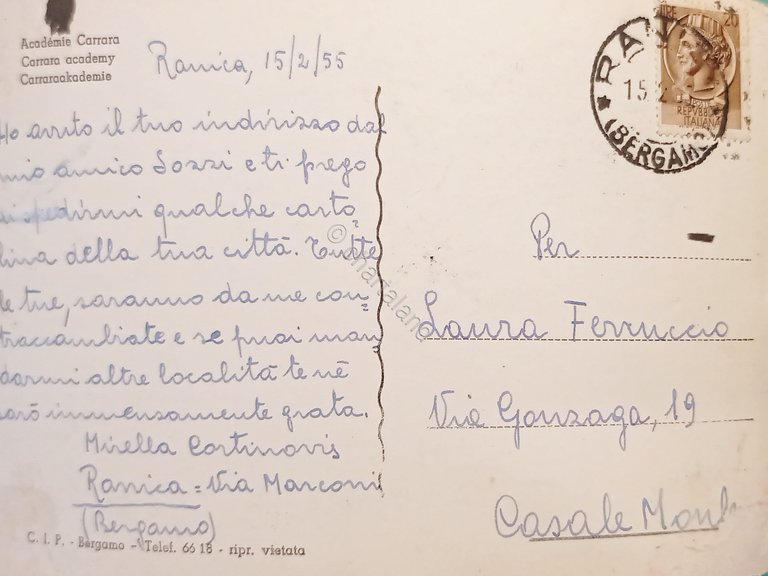 Académie Carrara
Carrara academy
Carraraakademie
Ranica, 15/2/55
Ho avuto il tuo indirizzo dal
mio amico Sozzi e ti prego
di spedirmi qualche carto=
lina della tua città. Tutte
le tue, saranno da me con=
traccambiate e se puoi man
darmi altre località te nè
sarò immensamente grata.
Mirella Cortinovis
Ranica = Via Marconi
(Bergamo)
C. I. P. - Bergamo - Telef. 66 18 - ripr. vietata
LIRE 20
REPVBBLICA
ITALIANA
(BERGAMO)
Per
Laura Ferruccio
Via Gonzaga, 19
Casale
© marialand